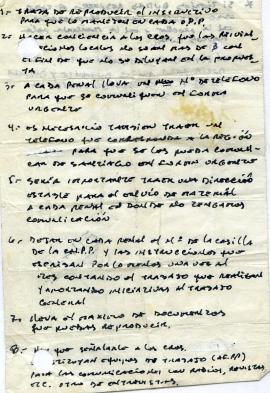 1.- TRATA DE REPRODUCIR EL INSTRUCTIVO
PARA QUE LO MANEJEN EN CADA P.P.
2.- HACER CONCIENCIA A LOS CROS. QUE LAS
LOCALES NO SEAN MAS DE 3 CON
EL FIN DE QUE NO SE DILUYA LA
TA
3.- A CADA PENAL LLEVA UN Nº DE TELEFONO
PARA QUE SE COMUNIQUEN EN FORMA
URGENTE
4.- ES NECESARIO TAMBIEN TRAER UN
TELEFONO QUE CORRESPONDA A LA REGIÓN
PARA QUE SE LES PUEDA COMUNI-
CAR DE SANTIAGO EN FORMA URGENTE
5.- SERÍA IMPORTANTE TRAER UNA DIRECCIÓN
ESTABLE PARA EL ENVÍO DE MATERIAL
A CADA PENAL EN DONDE NO TENGAMOS
COMUNICACIÓN
6.- DEJAR EN CADA PENAL EL Nº DE LA CASILLA
DE LA Y LAS INSTRUCCIONES QUE
ESCRIBAN POR LO MENOS UNA VEZ AL
MES CONTANDO EL TRABAJO QUE REALIZAN
Y APORTANDO INICIATIVAS AL TRABAJO
GENERAL
7.- LLEVA EL MAXIMO DE DOCUMENTOS
QUE PUEDAS REPRODUCIR.
8.- HAY QUE SEÑALARLE A LOS CROS.
EQUIPOS DE TRABAJO (AE.PP)
PARA LAS COMUNICACIONES CON RADIOS, REVISTAS,
ETC. OTRO DE ENTREVISTAS.